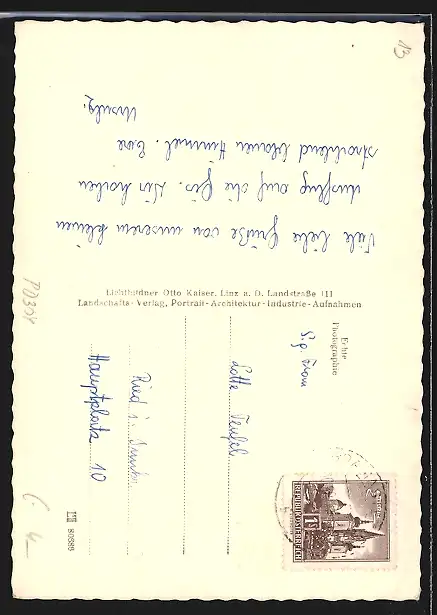 Viele liebe Grüße von unserem kleinen
Ausflug auf die Gis. Wir haben
strahlend blauen Himmel. Eure
Lichtbildner Otto Kaiser, Linz a. D. Landstraße 111
Landschafts-Verlag, Portrait-Architektur-Industrie-Aufnahmen
Echte
Photographie
S.g. Frau
Lotte Teufel
Ried i. Innkr.
Hauptplatz 10
REPUBLIK ÖSTERREICH
80686
PD304
13